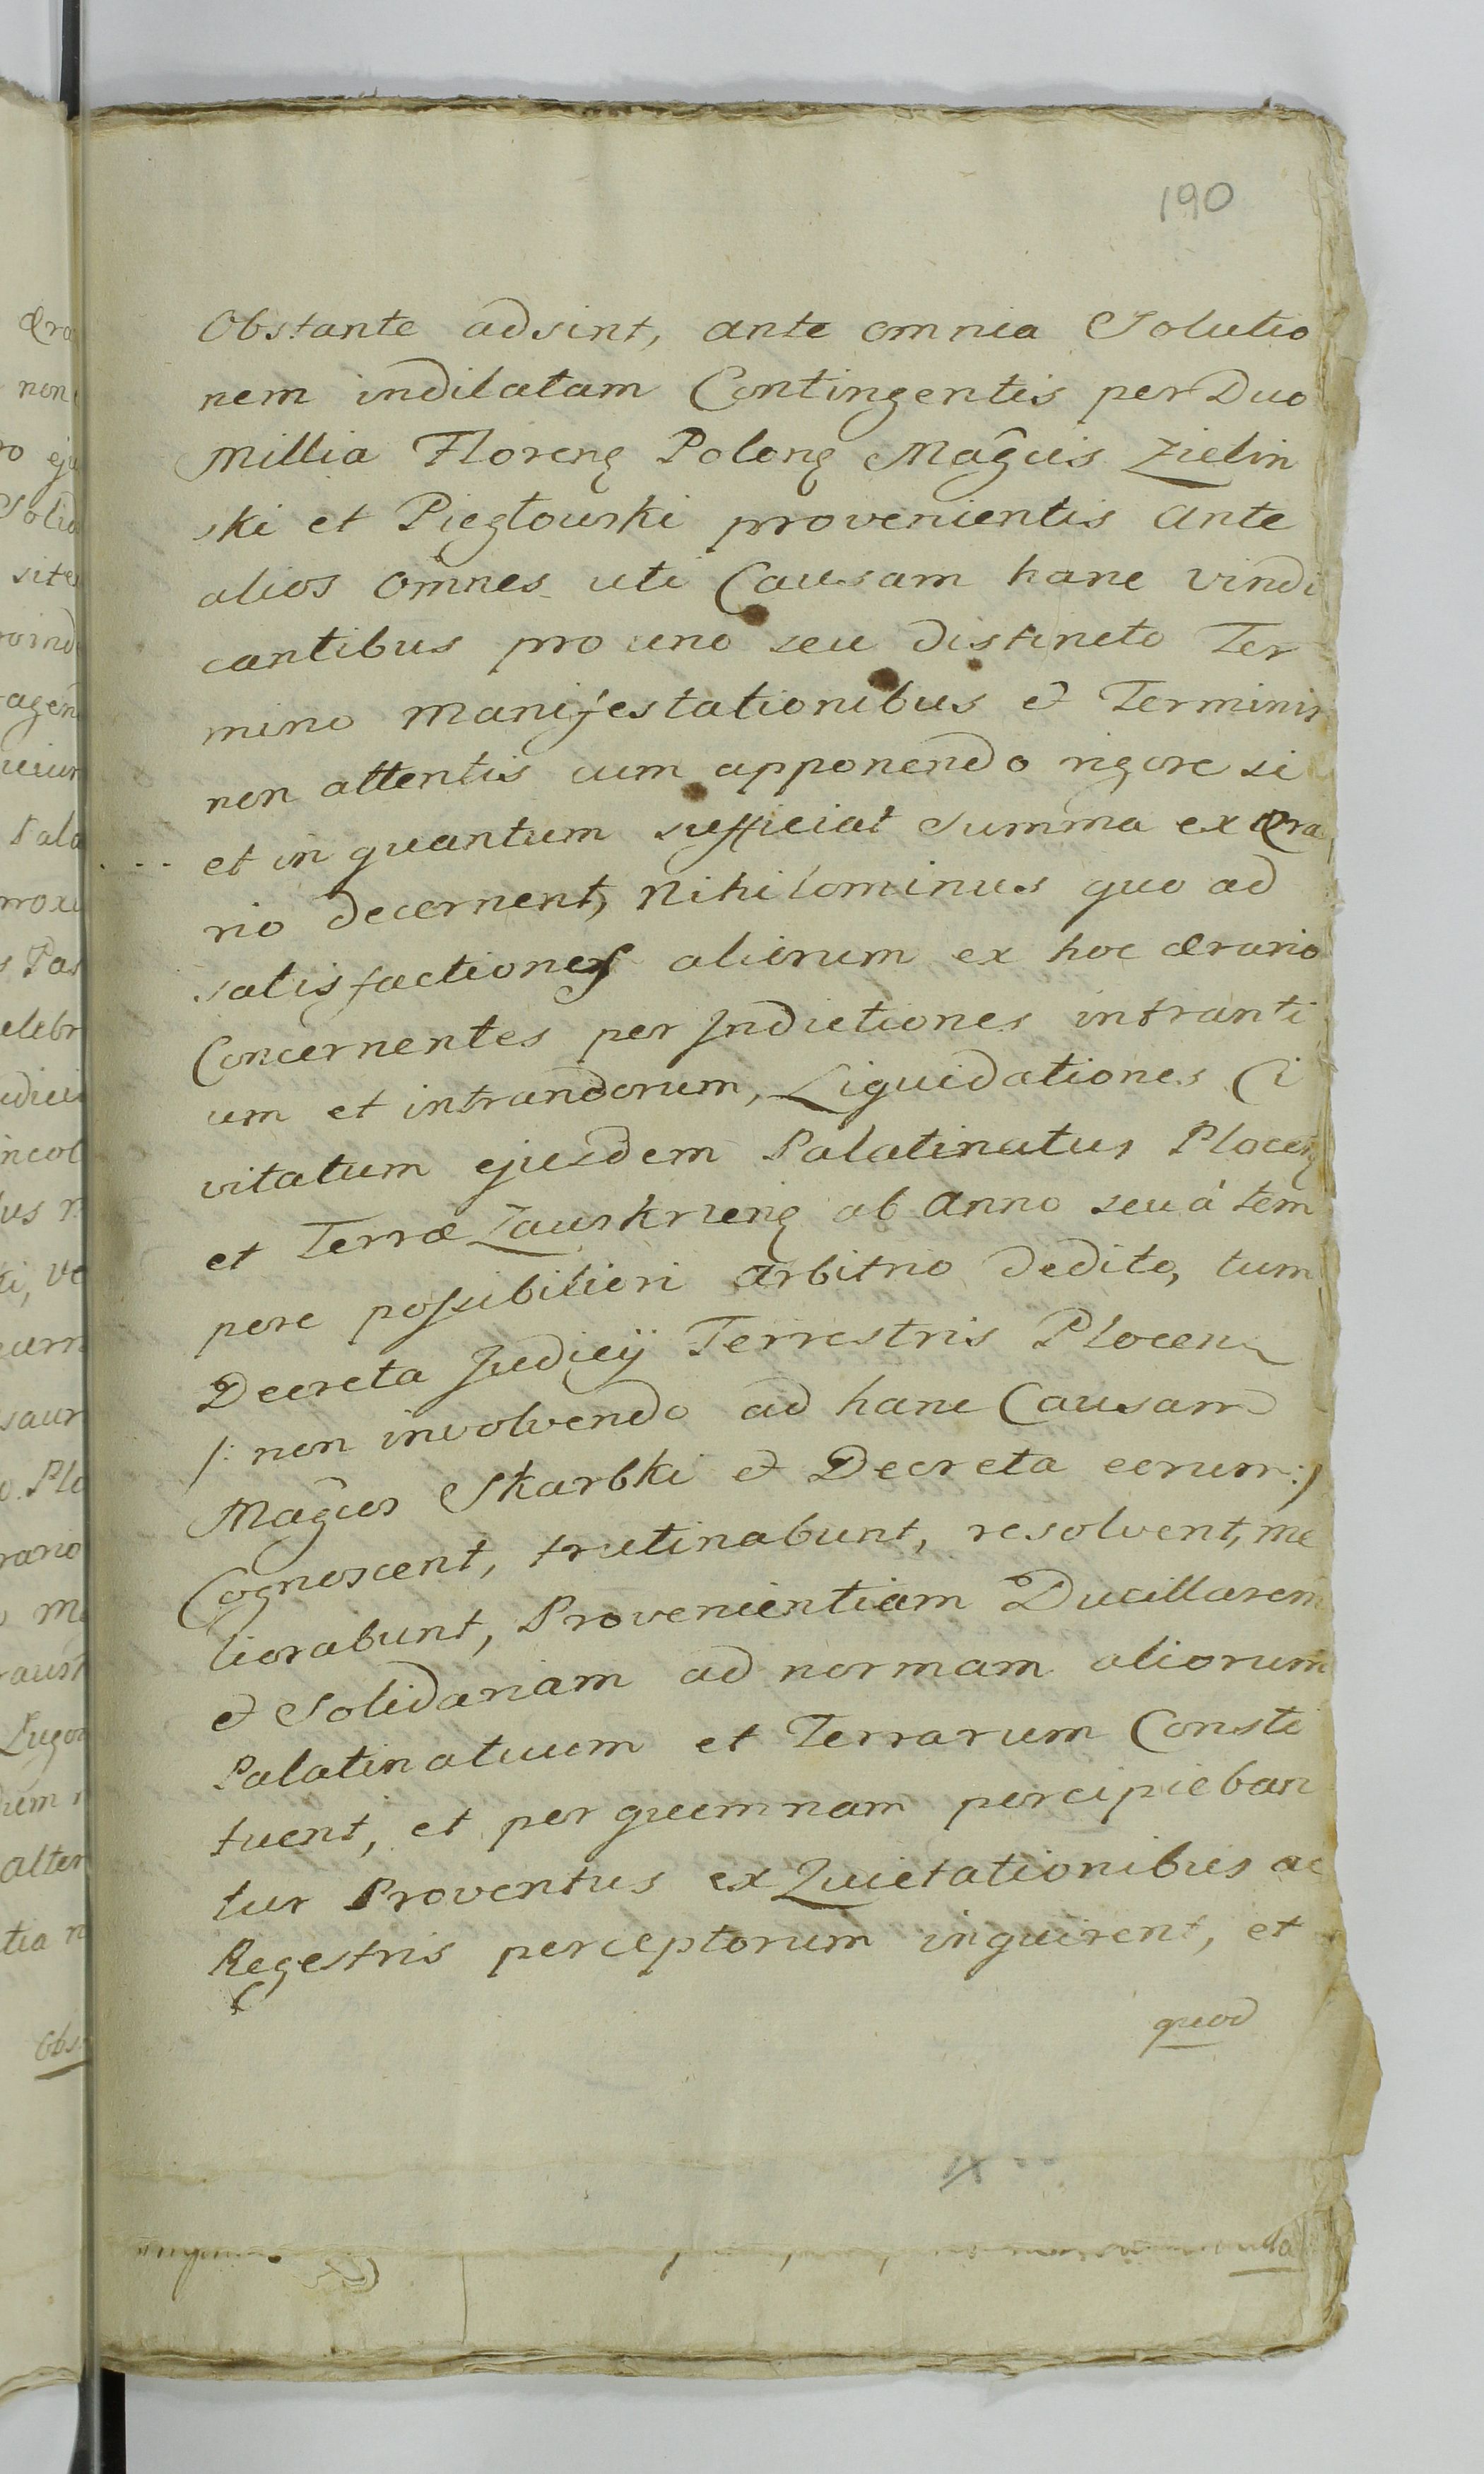 190
Obstante adsint, ante omnia Solutio
nem indilatam Contingentis per Duo
Millia Floreng Polong Magcis Zielin
ski et Piegłowski provenientis ante
alios omnes uti Causam hanc vindi
cantibus pro uno seu distincto Ter
mino Manifestationibus et Terminis
non attentis cum apponendo rigore si
et in quantum sufficiat summa ex æra
rio decernent, Nihilominus quo ad
satisfactiones aliorum ex hoc ærario
Concernentes per Indictiones intranti
um et intrandorum, Liquidationes Ci
vitatum ejusdem Palatinatus Plocen
et Terræ Zawskrien ab Anno seu à tem
pore possibiliori arbitrio dedito, tum
Decreta Judicij Terrestris Plocen
/: non involvendo ad hanc Causam
Magcos Skarbki et Decreta eorum :/
Cognoscent, trutinabunt, resolvent, me
liorabunt, Provenientiam Ducillarem
et Solidariam ad normam aliorum
Palatinatuum et Terrarum Consti
tuent, et per quemnam percipieban
tur Proventus ex Quietationibus ac
Regestris perceptorum inquirent, et
quod